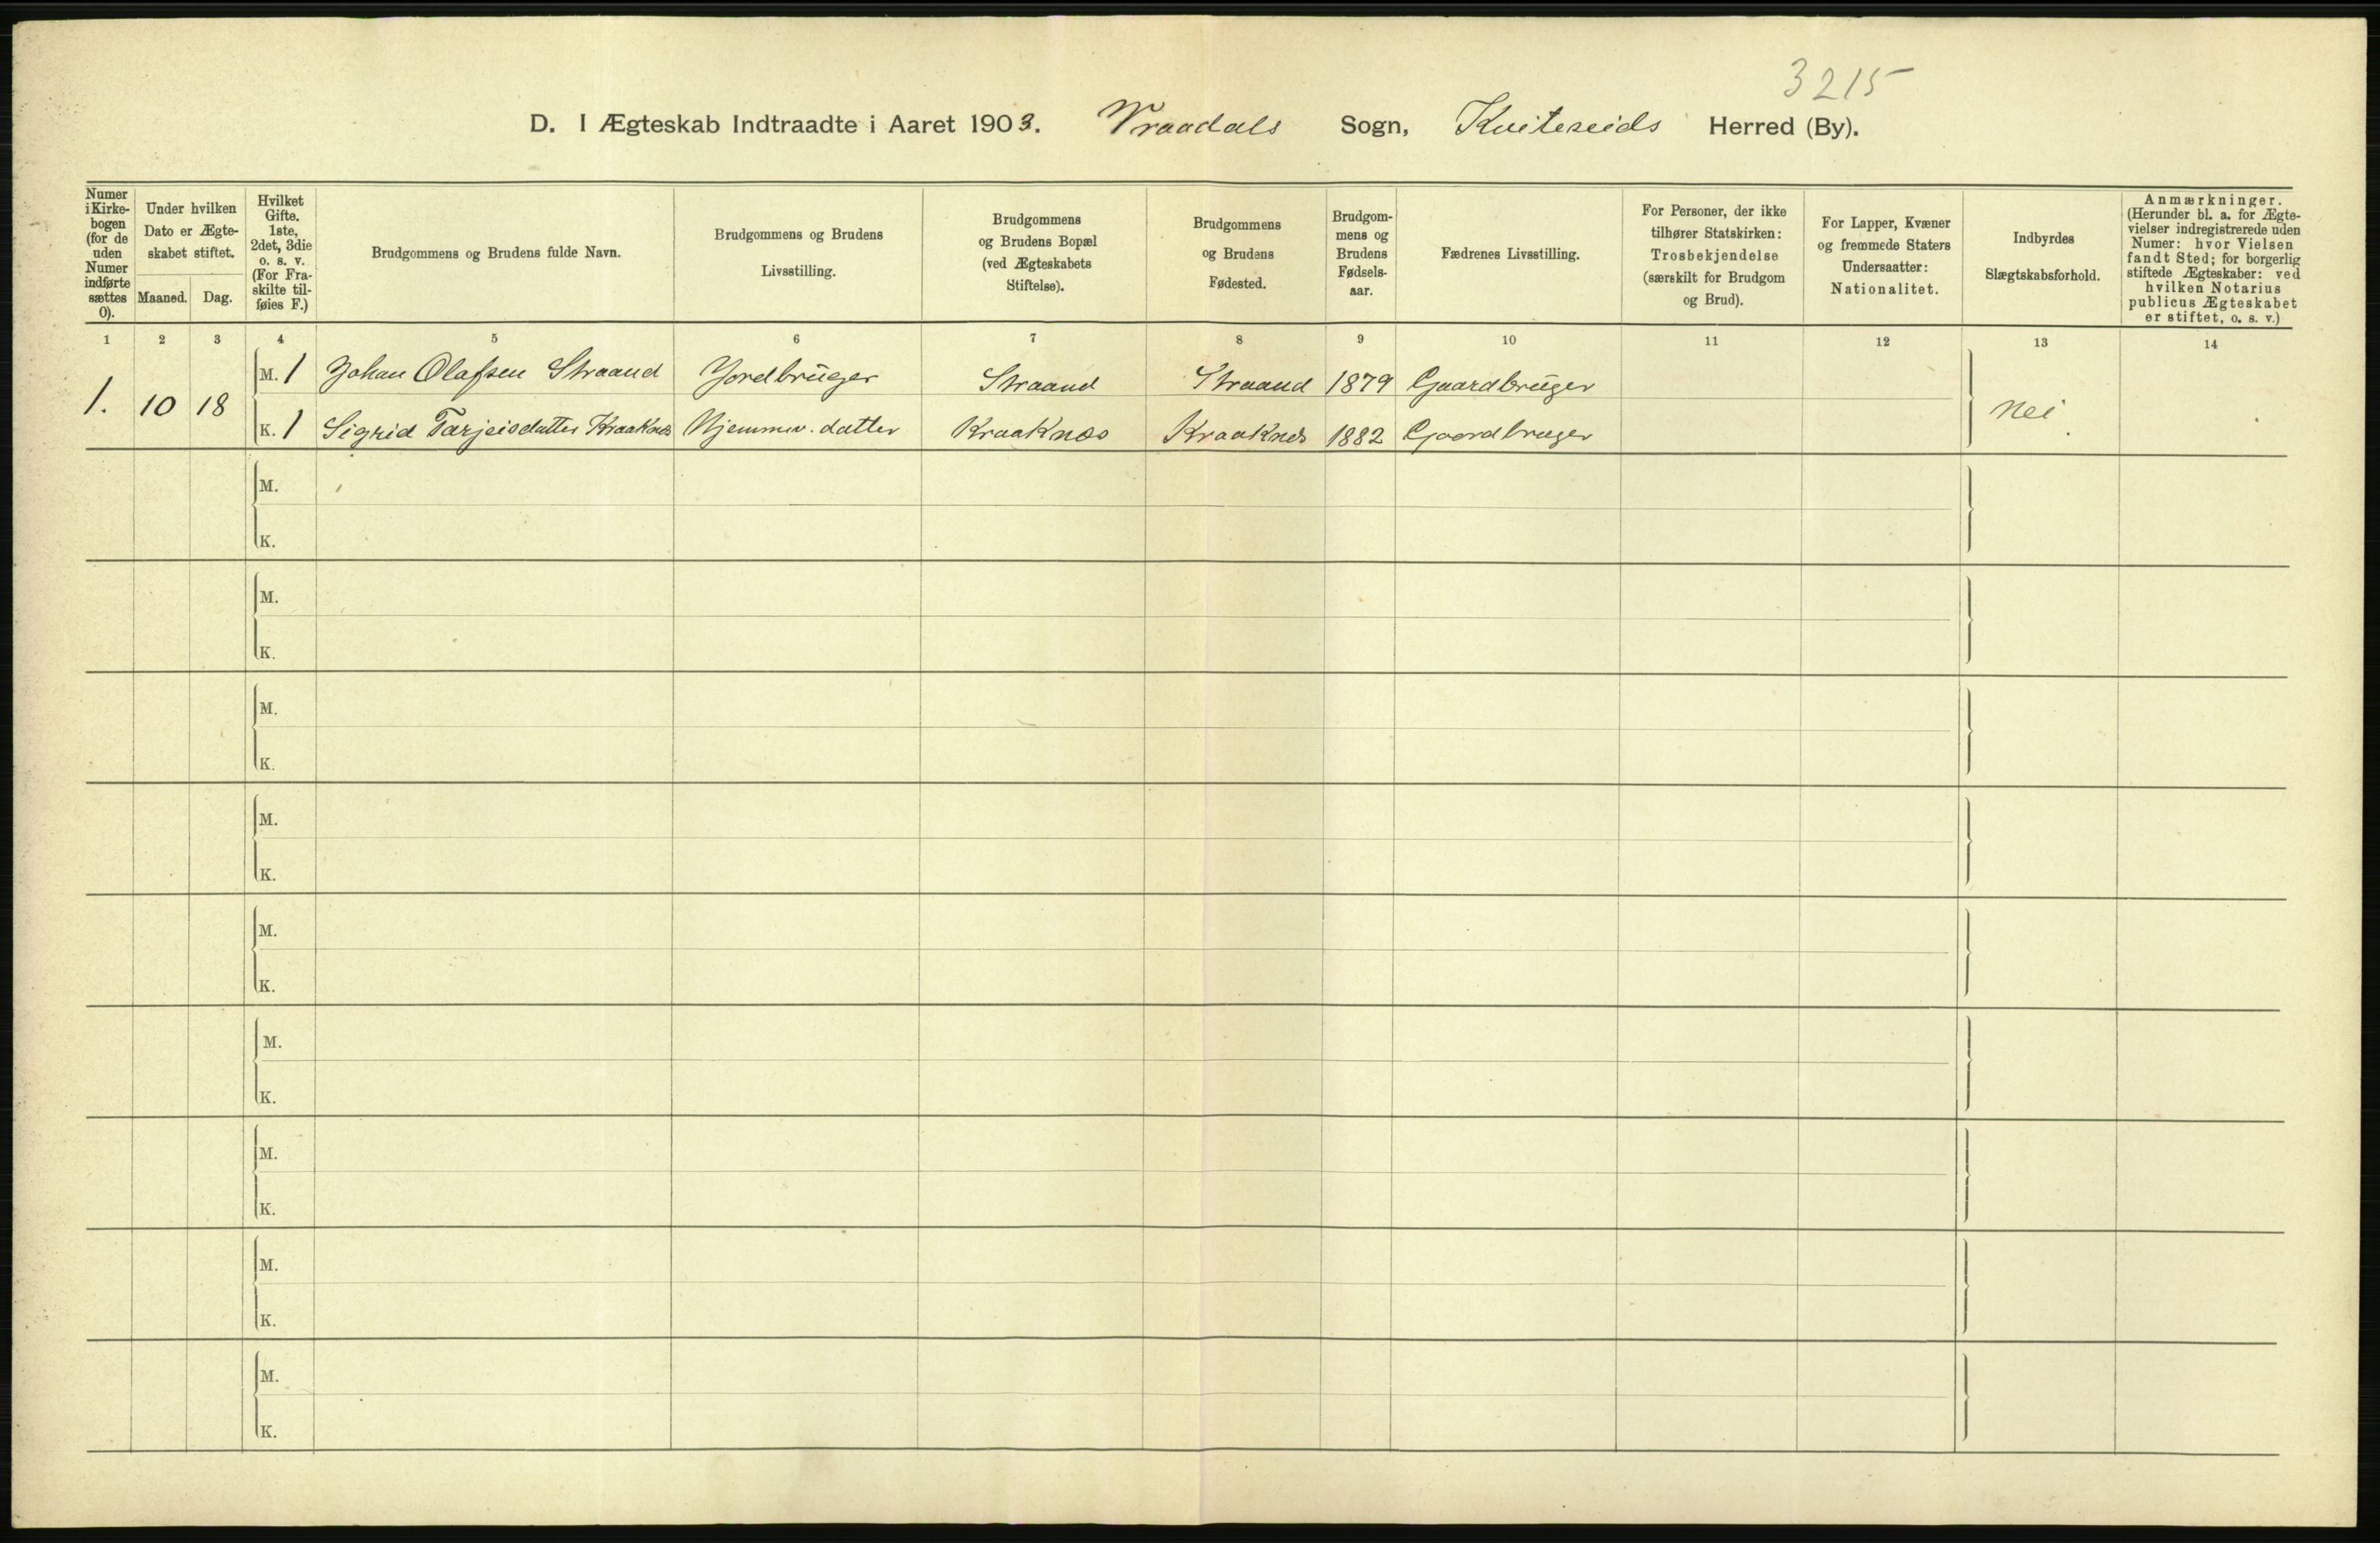 3215
D. I Ægteskab Indtraadte i Aaret 1903. Vraadals Sogn, Kviteseids Herred (By).
Numer i Kirke-bogen (for de uden Numer indførte sættes 0).
Under hvilken Dato er Ægte-skabet stiftet.
Maaned. Dag.
Hvilket Gifte. 1ste, 2det, 3die o. s. v. (For Fra-skilte til-føies F.)
Brudgommens og Brudens fulde Navn.
Brudgommens og Brudens Livsstilling.
Brudgommens og Brudens Bopæl (ved Ægteskabets Stiftelse).
Brudgommens og Brudens Fødested.
Brudgom-mens og Brudens Fødsels-aar.
Fædrenes Livsstilling.
For Personer, der ikke tilhører Statskirken: Trosbekjendelse (særskilt for Brudgom og Brud).
For Lapper, Kvæner og fremmede Staters Undersaatter: Nationalitet.
Indbyrdes Slægtskabsforhold.
Anmærkninger. (Herunder bl. a. for Ægte-vielser indregistrerede uden Numer: hvor Vielsen fandt Sted; for borgerlig stiftede Ægteskaber: ved hvilken Notarius publicus Ægteskabet er stiftet, o. s. v.)
1 2 3 4 5 6 7 8 9 10 11 12 13 14
M. 1 Johan Olafsen Straand Jordbruger Straand Straand 1879 Gaardbruger
1. 10 18 Nei
K. 1 Sigrid Tarjeisdatter Kraaknes Hjemmev. datter Kraaknes Kraaknes 1882 Gaardbruger
M.
K.
M.
K.
M.
K.
M.
K.
M.
K.
M.
K.
M.
K.
M.
K.
M.
K.